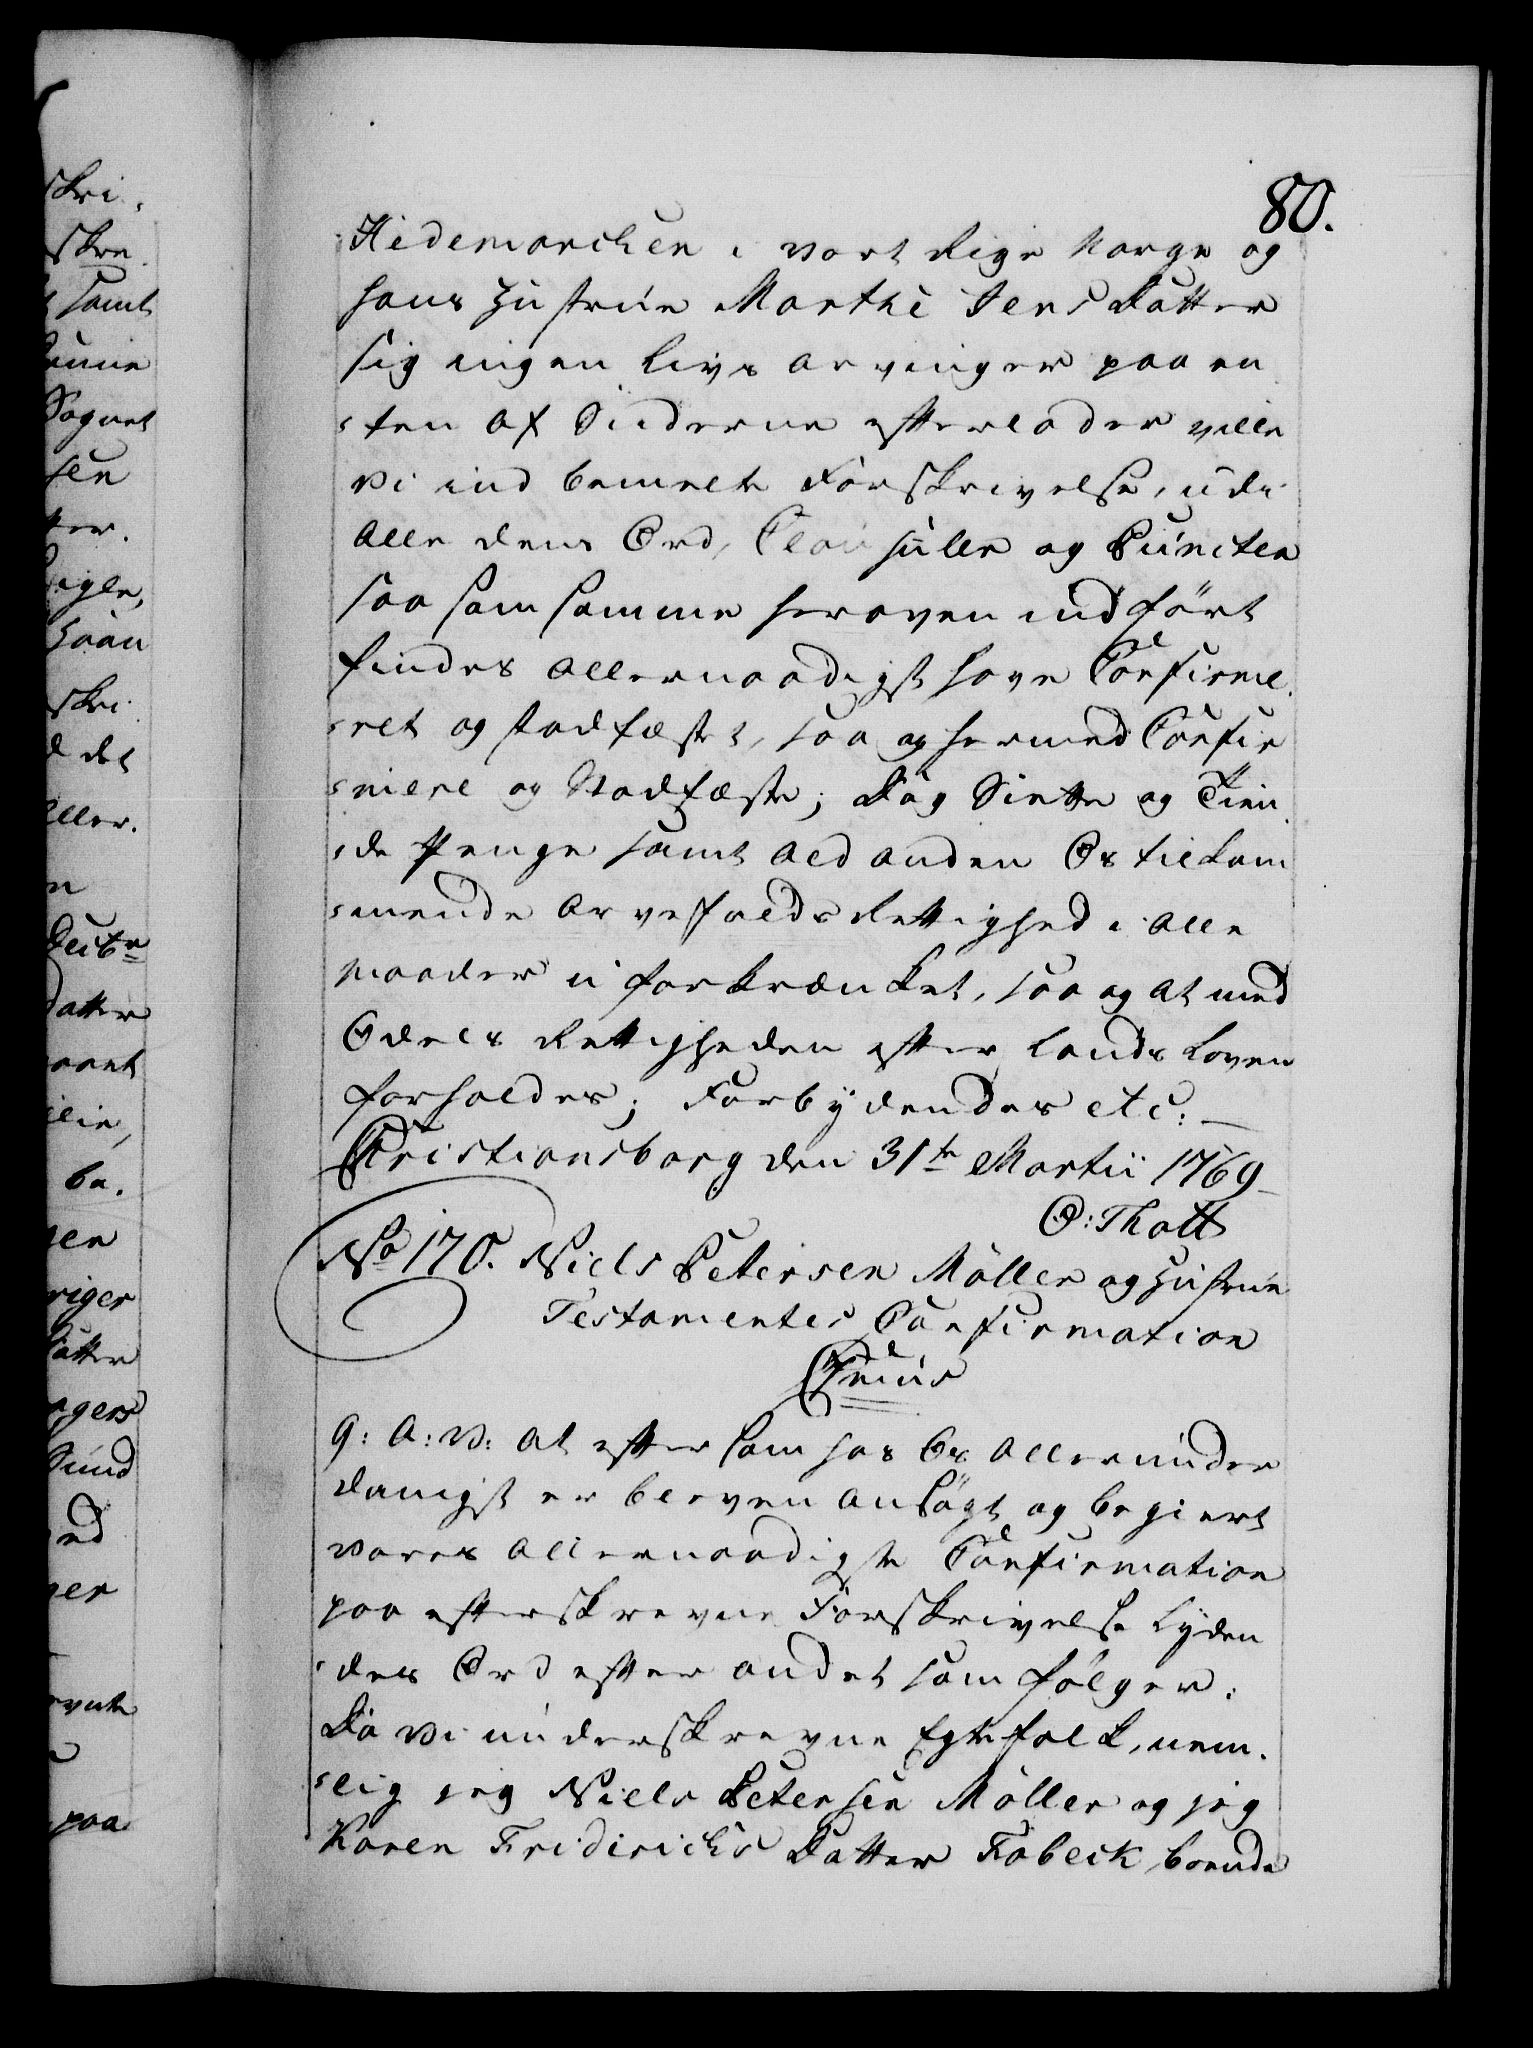 80.
Hedemarchen i vort Rige Norge og
hans Hustrue Marthe Jens Datter
sig ingen livs arvinger paa en
-ten af Siderne efterlader ville
vi ind bemelte Forskrivelse, udi
alle dens Ord, Clausuller og Puncter
saa som samme heroven indført
findes allernaadigst have Confirme-
-ret og stadfæstet, saa og hermed Confir
-mere og Stadfæste; Dog Siette og Tien
-de Penge samt ald anden Os tilkom
-mende arvefalds Rettighed i alle
maader u-forkrænket, saa og at med
Odels Rettigheden efter Lands Loven
forholdes; Forbydendes etc: —
Christiansborg den 31te Martii 1769
O: Thott
No 170. Niels Petersen Möller og Hustrue
Testamentes Confirmation
G: A: V: at eftersom hos Os allerunder
danigst er bleven ansøgt og begiert
vores allernaadigste Confirmation
paa efterskrevne Forskrivelse lyden
-des Ord efter andet som følger:
Da vi underskrevne Egtefolk, nem-
-lig jeg Niels Petersen Möller og jeg
Karen Fridirichs Datter Fabeck boende
skri-
samt
Sognet
det
eller.
n
datter
be.
ger
paa